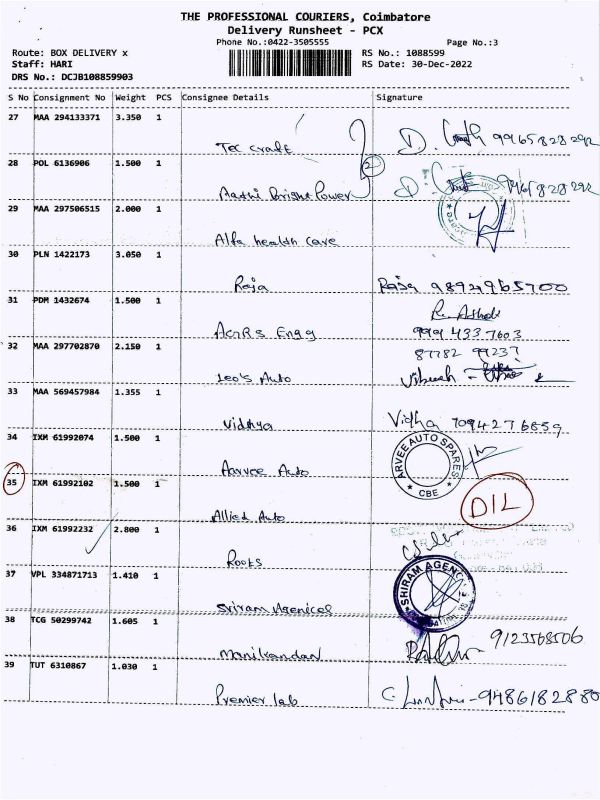 THE PROFESSIONAL COURIERS, Coimbatore
Delivery Runsheet - PCX
Phone No.:0422-3505555
Page No.:3
Route: BOX DELIVERY x
RS No.: 1088599
Staff: HARI
RS Date: 30-Dec-2022
DRS No.: DCJB108859903
S No Consignment No Weight PCS Consignee Details Signature
27 MAA 294133371 3.350 1
Tec craft D. 9965828292
28 POL 6136906 1.500 1
2
Aathi Bright Power D.
29 MAA 297506515 2.000 1
Alfa health care
30 PLN 1422173 3.050 1
Raja Raja 9894965700
31 PDM 1432674 1.500 1
R. Ashok
AcRRS Engg 9994337603
32 MAA 297702870 2.150 1
87782 99237
Leo's Auto
33 MAA 569457984 1.355 1
Vidhya Vidha 7094276859
34 IXM 61992074 1.500 1
Aarvee Auto
ARVEE AUTO SPARES
CBE
35 IXM 61992102 1.500 1
Allied Auto
D1L
36 IXM 61992232 2.800 1
Roots
37 VPL 334871713 1.410 1
Sriram Agenices
SHRIRAM AGENC
38 TCG 50299742 1.605 1
Manikandan 9123568506
39 TUT 6310867 1.030 1
Premier lab 9486182880